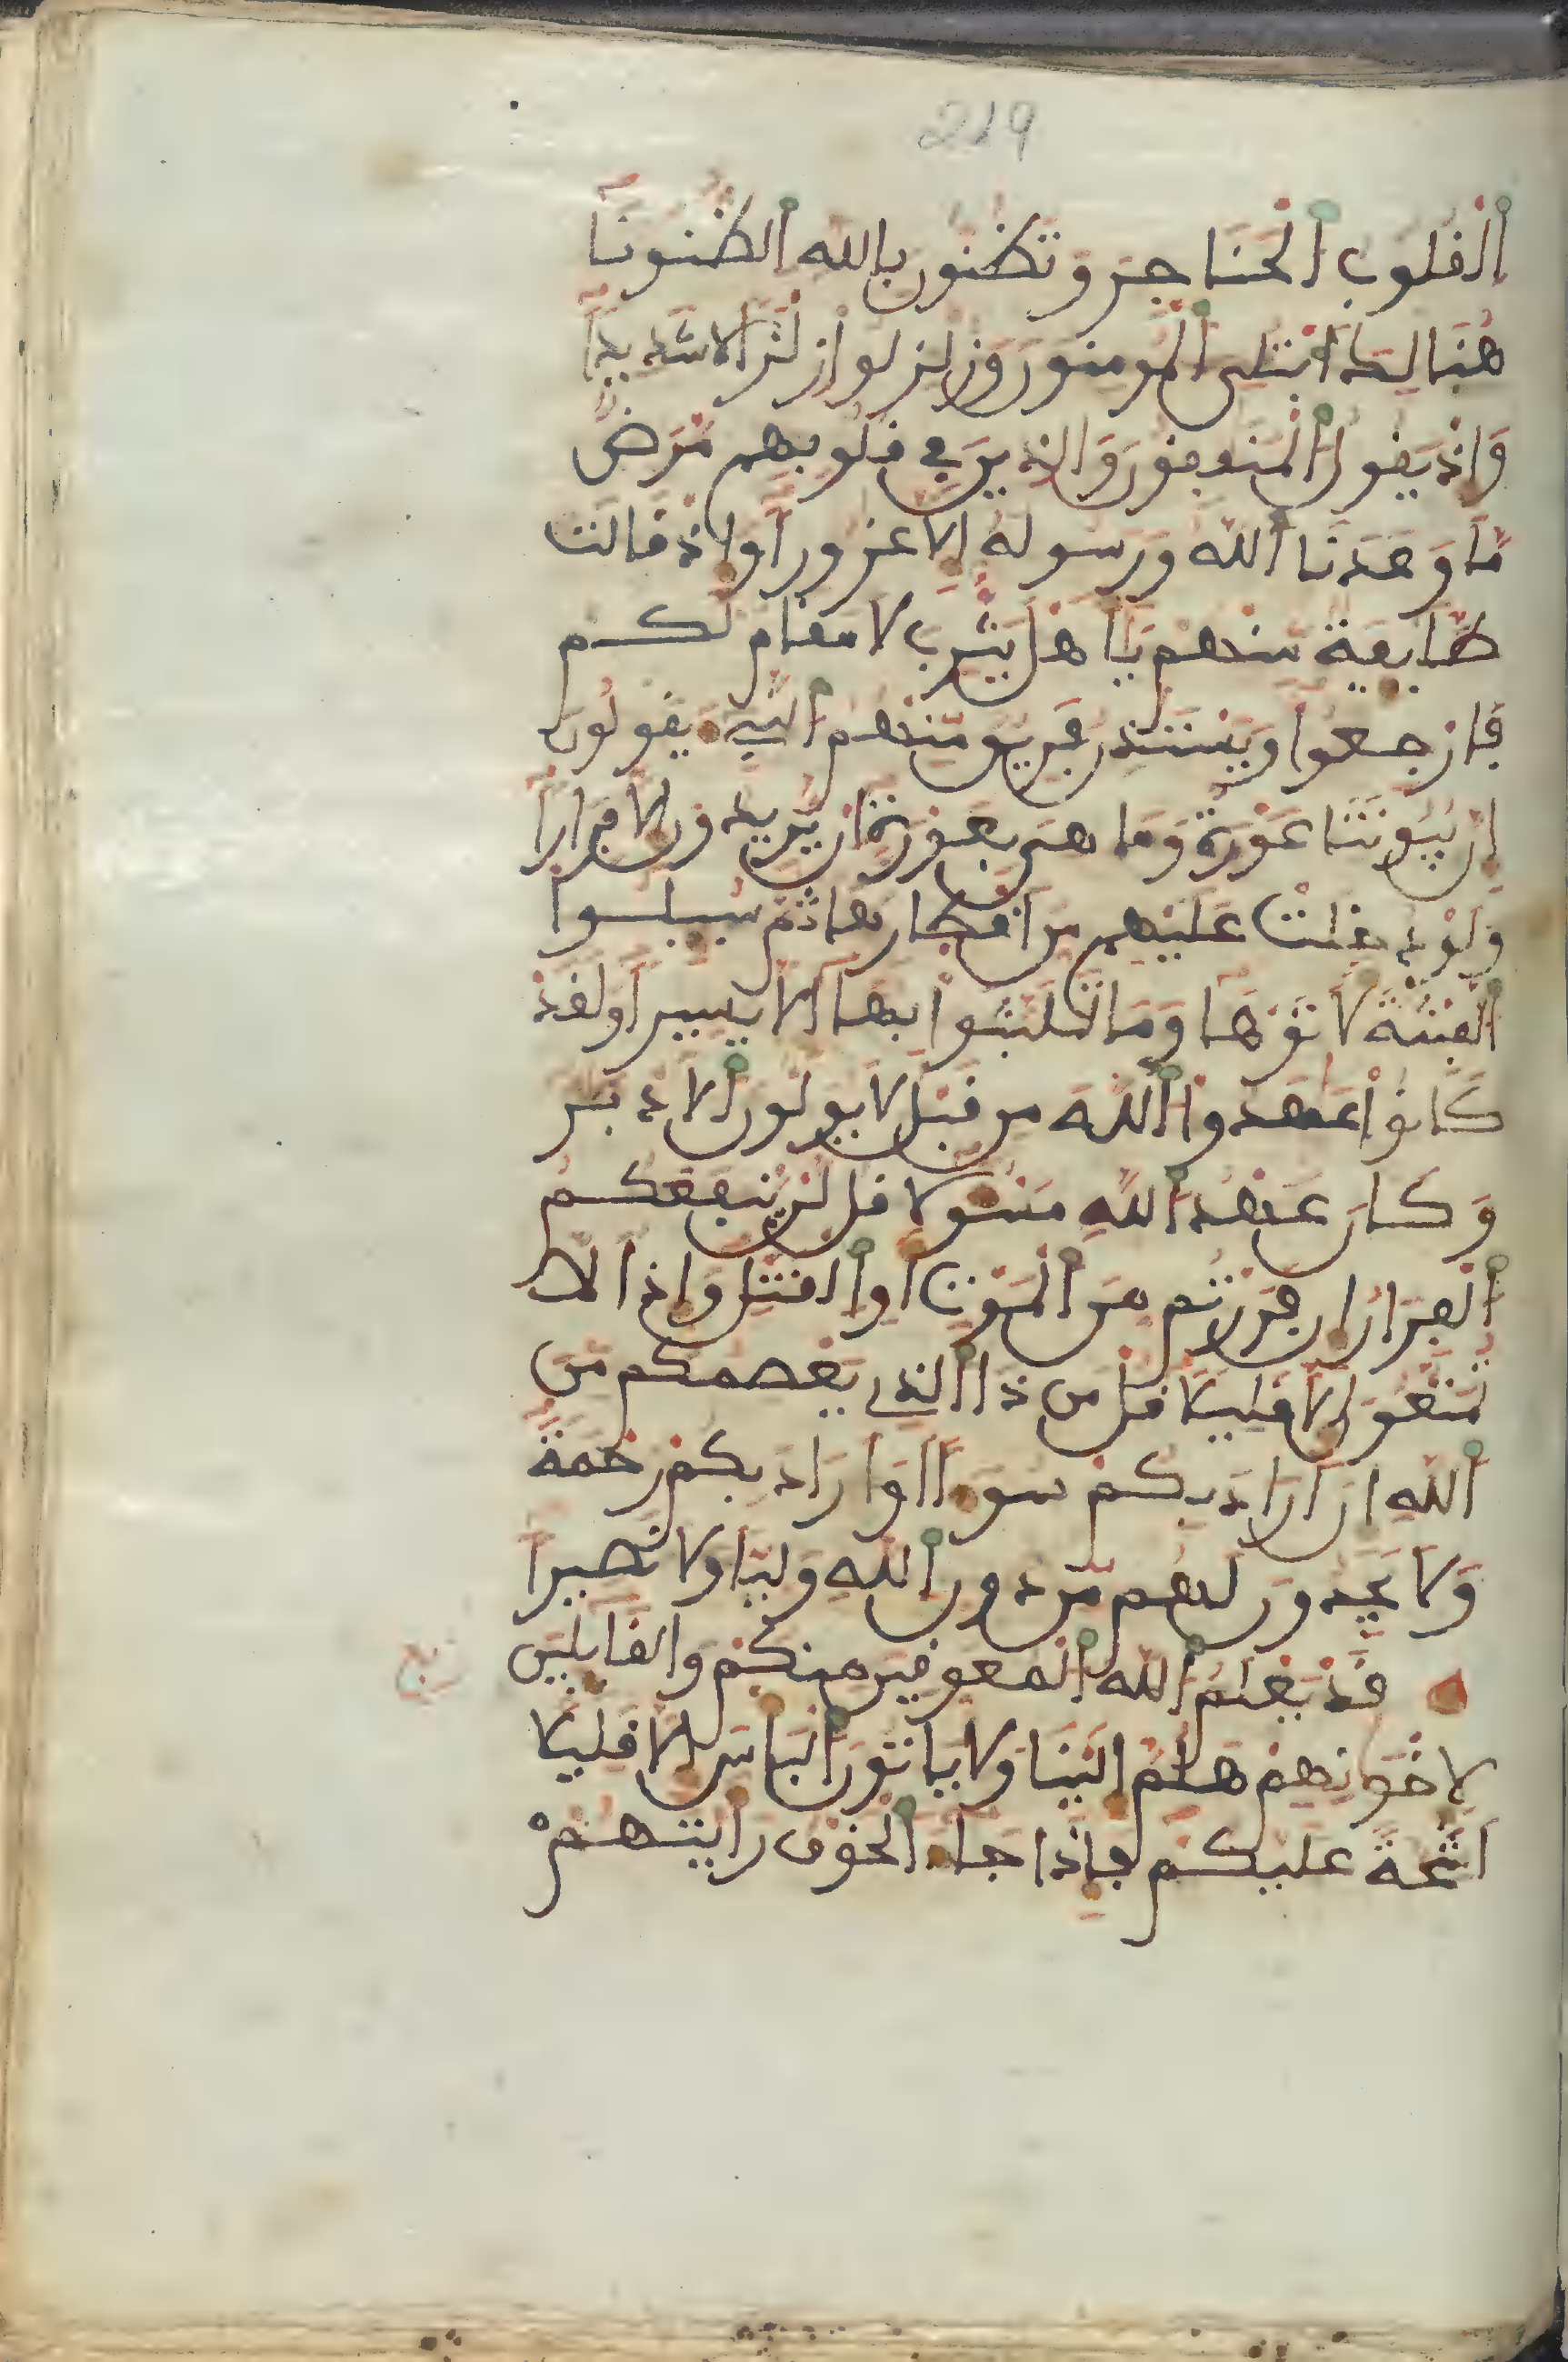 219
الفلوب الحناجر وتظنون بالله الظنونا
هنالك ابتلى المومنون وزلزلوا زلزالا شديدا
واذ يفول المنفون والذين في فلوبهم مرض
ما وعدنا الله ورسوله الا غرورا واذ فالت
طايفة منهم ياهل يثرب لا مفام لكم
فارجعوا ويستذن فريق منهم النبي يفولون
ان بيوتنا عورة وما هي بعورة ان يريدون الا فرارا
ولو دخلت عليهم من افطارها ثم سيلوا
الفتنة لاتوها وما تلبثوا بها الا يسيرا ولفد
كانوا عهدوا الله من فبل لا يولون الادبر
وكان عهد الله مسولا فل لن ينفعكم
الفرار ان فررتم من الموت او الفتل واذا لا
تمتعون الا فليلا فل من ذا الذي يعصمكم من
الله ان اراد بكم سوءا او اراد بكم رحمة
ولا يجدون لهم من دون الله وليا ولا نصيرا
فد يعلم الله المعوفين منكم والفايلين
ربع
لاخوانهم هلم الينا ولا ياتون الباس الا فليلا
اشحة عليكم فاذا جاء الخوف رايتهم